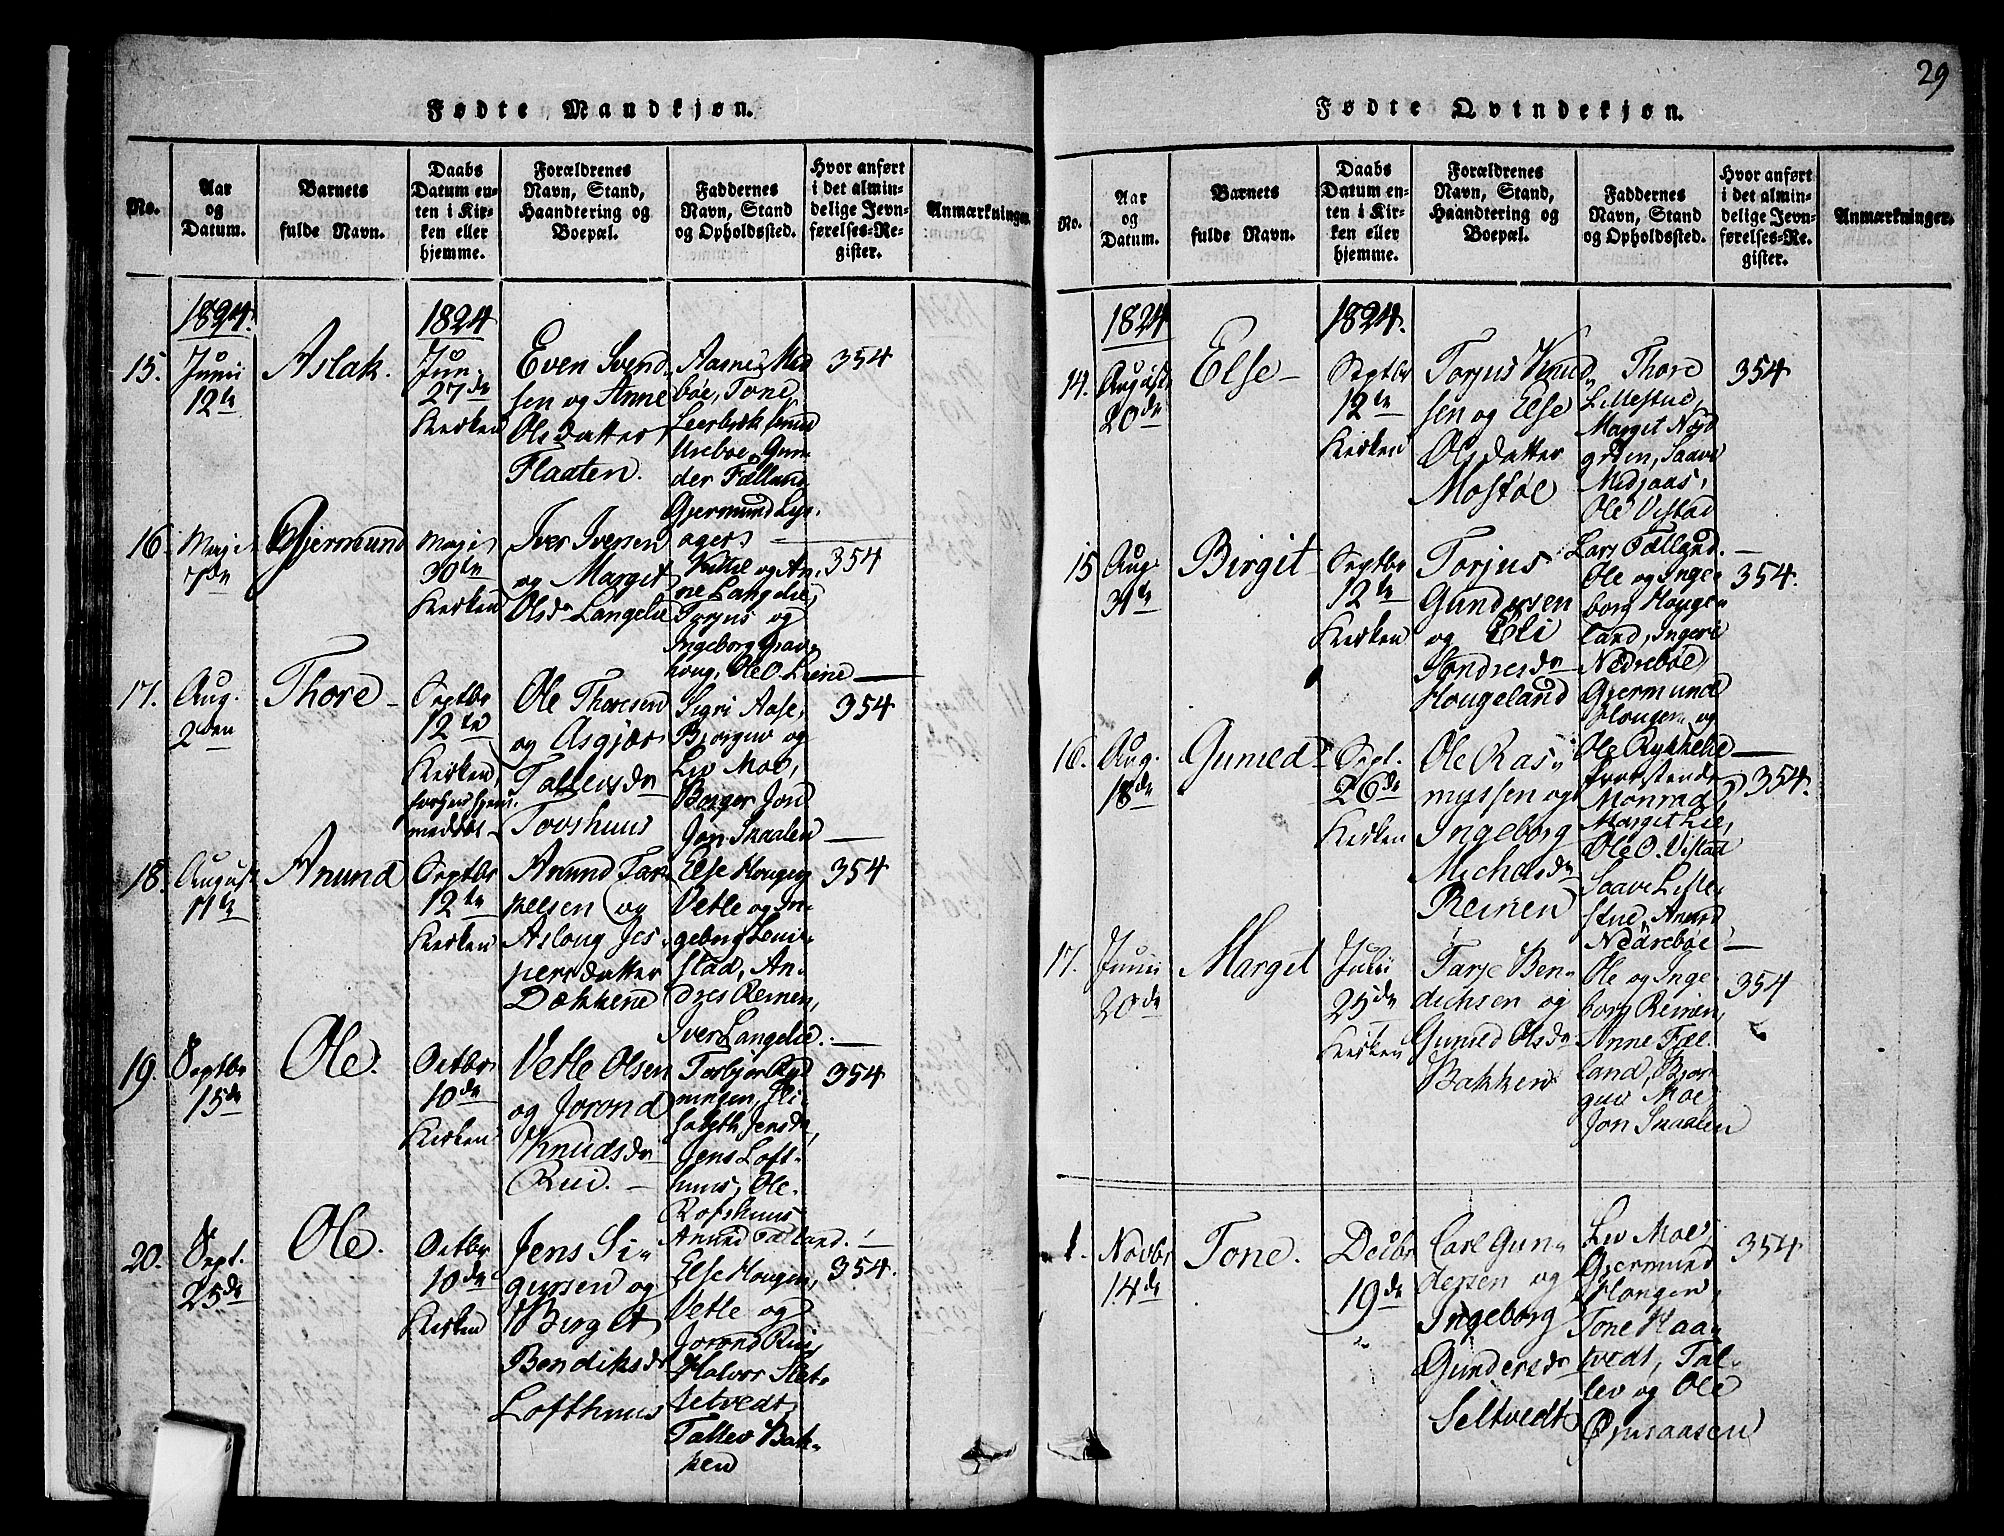 Fødte Mandkjøn.
No.
Aar
og
Datum.
Barnets
fulde Navn.
Daabs
Datum en-
ten i Kir-
ken eller
hjemme.
Forældrenes
Navn, Stand,
Haandtering og
Boepæl.
Faddernes
Navn, Stand
og Opholdssted.
Hvor anført
i det almin-
delige Jevn-
førelses-Re-
gister.
Anmærkninger.
15.
1824.
Junii
12te
Aslak.
1824
Jun.
27de
Kirken
Even Svend-
sen og Anne
Olsdatter
Flaaten.
Aasne Mid
bøe, Tone
Leerbræk Knud
Ureboe, Gun-
der Fælland
Gjermund Lys-
ager
354
16.
Maji
7de
Gjermund
Maji
30te
Kirken
Iver Iversen
og Marget
Olsdr Langelie
Kittil og An-
ne Langelie,
Torjus og
Ingeborg Grav-
houg, Ole O. Liene
354
17.
Aug.
2den
Thore
Septbr
12te
Kirken,
forhen hjem-
medøbt
Ole Thoresen
og Asgjær
Tallevsdr
Tovshuus
Sigri Aase,
Bjørguv og
Liv Moe,
Børger Jon
Jon Snaalen
354
18.
August
11te
Anund
Septbr
12te
Kirken
Anund Tar-
kelsen og
Asloug Jes-
persdatter
Dækkene
Else Hougen,
Vetle og In-
geborg Lenir-
stad, An-
dres Reinen,
Iver Langelie.
354
19.
Septbr
15de
Ole.
Octbr
10de
Kirken
Vetle Olsen
og Jorond
Knudsdr
Rui.
Torbjør Ryd
ningen, Eli-
sabeth Jensdr,
Jens Loft-
huus, Ole
Rofshuus
Anund Fælland.
354
20.
Sept.
25de
Ole.
Octbr
10de
Kirken
Jens Si-
gursen og
Birget
Bendiksdr
Lofthuus
Else Hougen,
Vetle og
Jorond Rui,
Halvor Slet-
tetvedt
Tallev Bak-
ken
354
29
Fødte Qvindekjøn.
No.
Aar
og
Datum.
Barnets
fulde Navn.
Daabs
Datum en-
ten i Kir-
ken eller
hjemme.
Forældrenes
Navn, Stand,
Haandtering og
Boepæl.
Faddernes
Navn, Stand
og Opholdssted.
Hvor anført
i det almin-
delige Jevn-
førelses-Re-
gister.
Anmærkninger.
14.
1824
August
20de
Else
1824.
Septbr
12te
Kirken
Torjus Knud-
sen og Else
Olsdatter
Mostøe
Thore
Lillestud,
Marget Nord
grden, Saave
Midjaas,
Ole Vistad
354
15
Aug.
31te
Birgit
Septbr
12te
Kirken
Torjus
Gundersen
og Eli
Sondresdr
Hougeland
Lars Fælland.
Ole og Inge-
borg Houge-
land, Ingeri
Nedrebøe,
Gjermund
Hougen og
Ole Rykkelie
354.
16.
Aug.
18de
Guned
Sept.
26de
Kirken
Ole Ras-
myssen og
Ingeborg
Michelsdr
Reinen
Monrad,
Marget Lie,
Ole O. Vistad
Saave Lille-
stue, Anund
Nedrebøe
354.
17.
Junii
20de
Marget
Julii
25de
Kirken
Tarje Ben-
dichsen og
Guned Olsdr
Bakken
Ole og Inge-
borg Reinen,
Anne Fæl-
land, Bjør-
guv Moe,
Jon Snaalen
354
1.
Novbr
14de
Tone.
Decbr
19de
Carl Gun-
dersen og
Ingeborg
Gundersdr
Seltvedt
Liv Moe,
Gjermund
Hougen,
Tone Haa-
tvedt, Tal-
lev og Ole
Øjusaasen
354